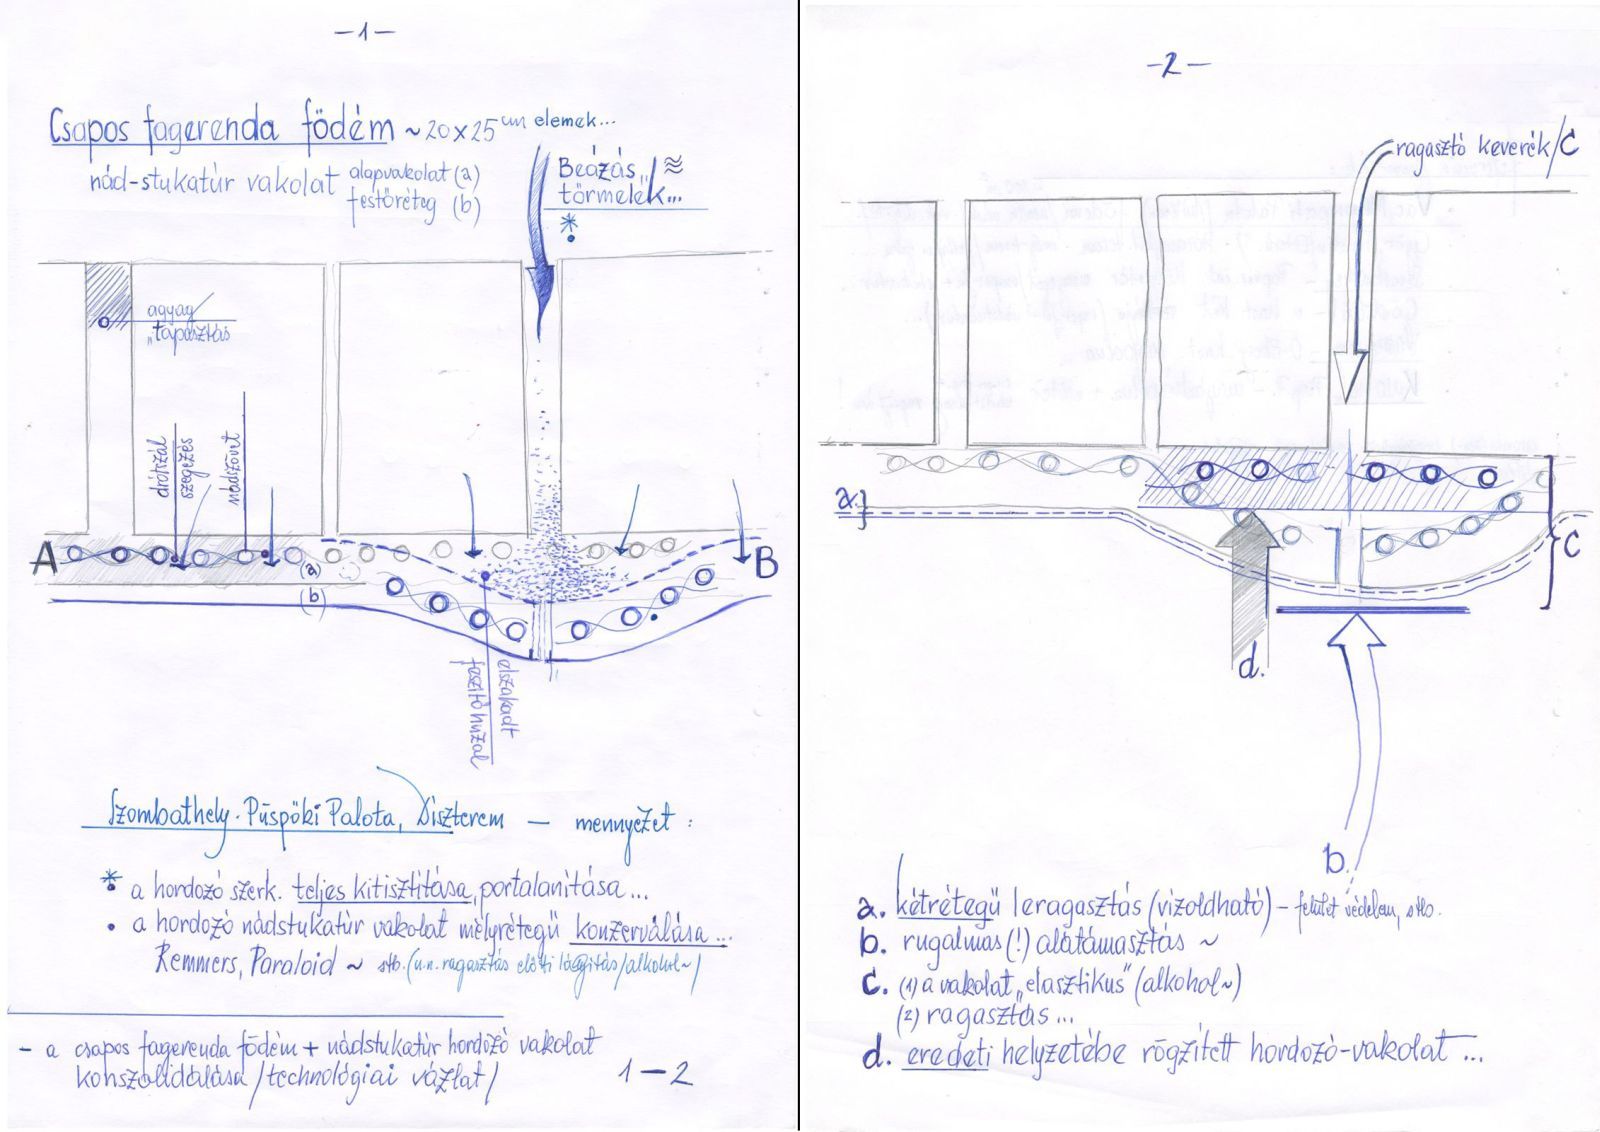 -1-
Csapos fagerenda födém ~20x25 cm elemek...
nád-stukatúr vakolat alapvakolat (a)
festőréteg (b)
Beázás,
törmelék...
*
agyag
"tapasztás
drótszál
szegezés
nádszövet
A
(a)
(b)
B
elszakadt
feszítőhuzal
Szombathely. Püspöki Palota, Díszterem — mennyezet:
* a hordozó szerk. teljes kitisztítása, portalanítása...
• a hordozó nádstukatúr vakolat mélyrétegű konzerválása...
Remmers, Paraloid ~ stb. (u.n. ragasztás előtti lágyítás/alkohol~/
- a csapos fagerenda födém + nádstukatúr hordozó vakolat
konszolidálása /technológiai vázlat/
1-2
-2-
ragasztó keverék/C
a.
C
d.
b.
a. kétrétegű leragasztás (vizoldható) - felület védelem, stb.
b. rugalmas (!) alátámasztás ~
C. (1) a vakolat „elasztikus" (alkohol~)
(2) ragasztás...
d. eredeti helyzetébe rögzített hordozó-vakolat...